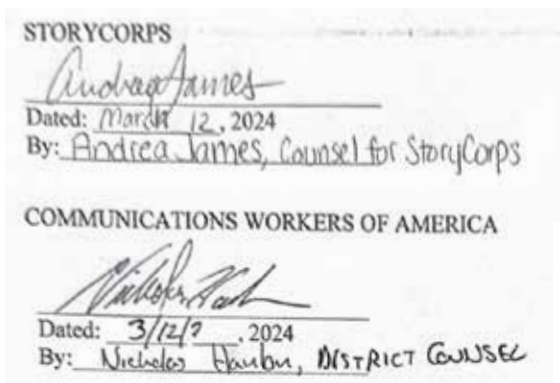 STORYCORPS
Andrea James
Dated: March 12, 2024
By: Andrea James, Counsel for StoryCorps
COMMUNICATIONS WORKERS OF AMERICA
Dated: 3/12/2, 2024
By: Nicholas Hanlon, DISTRICT COUNSEL